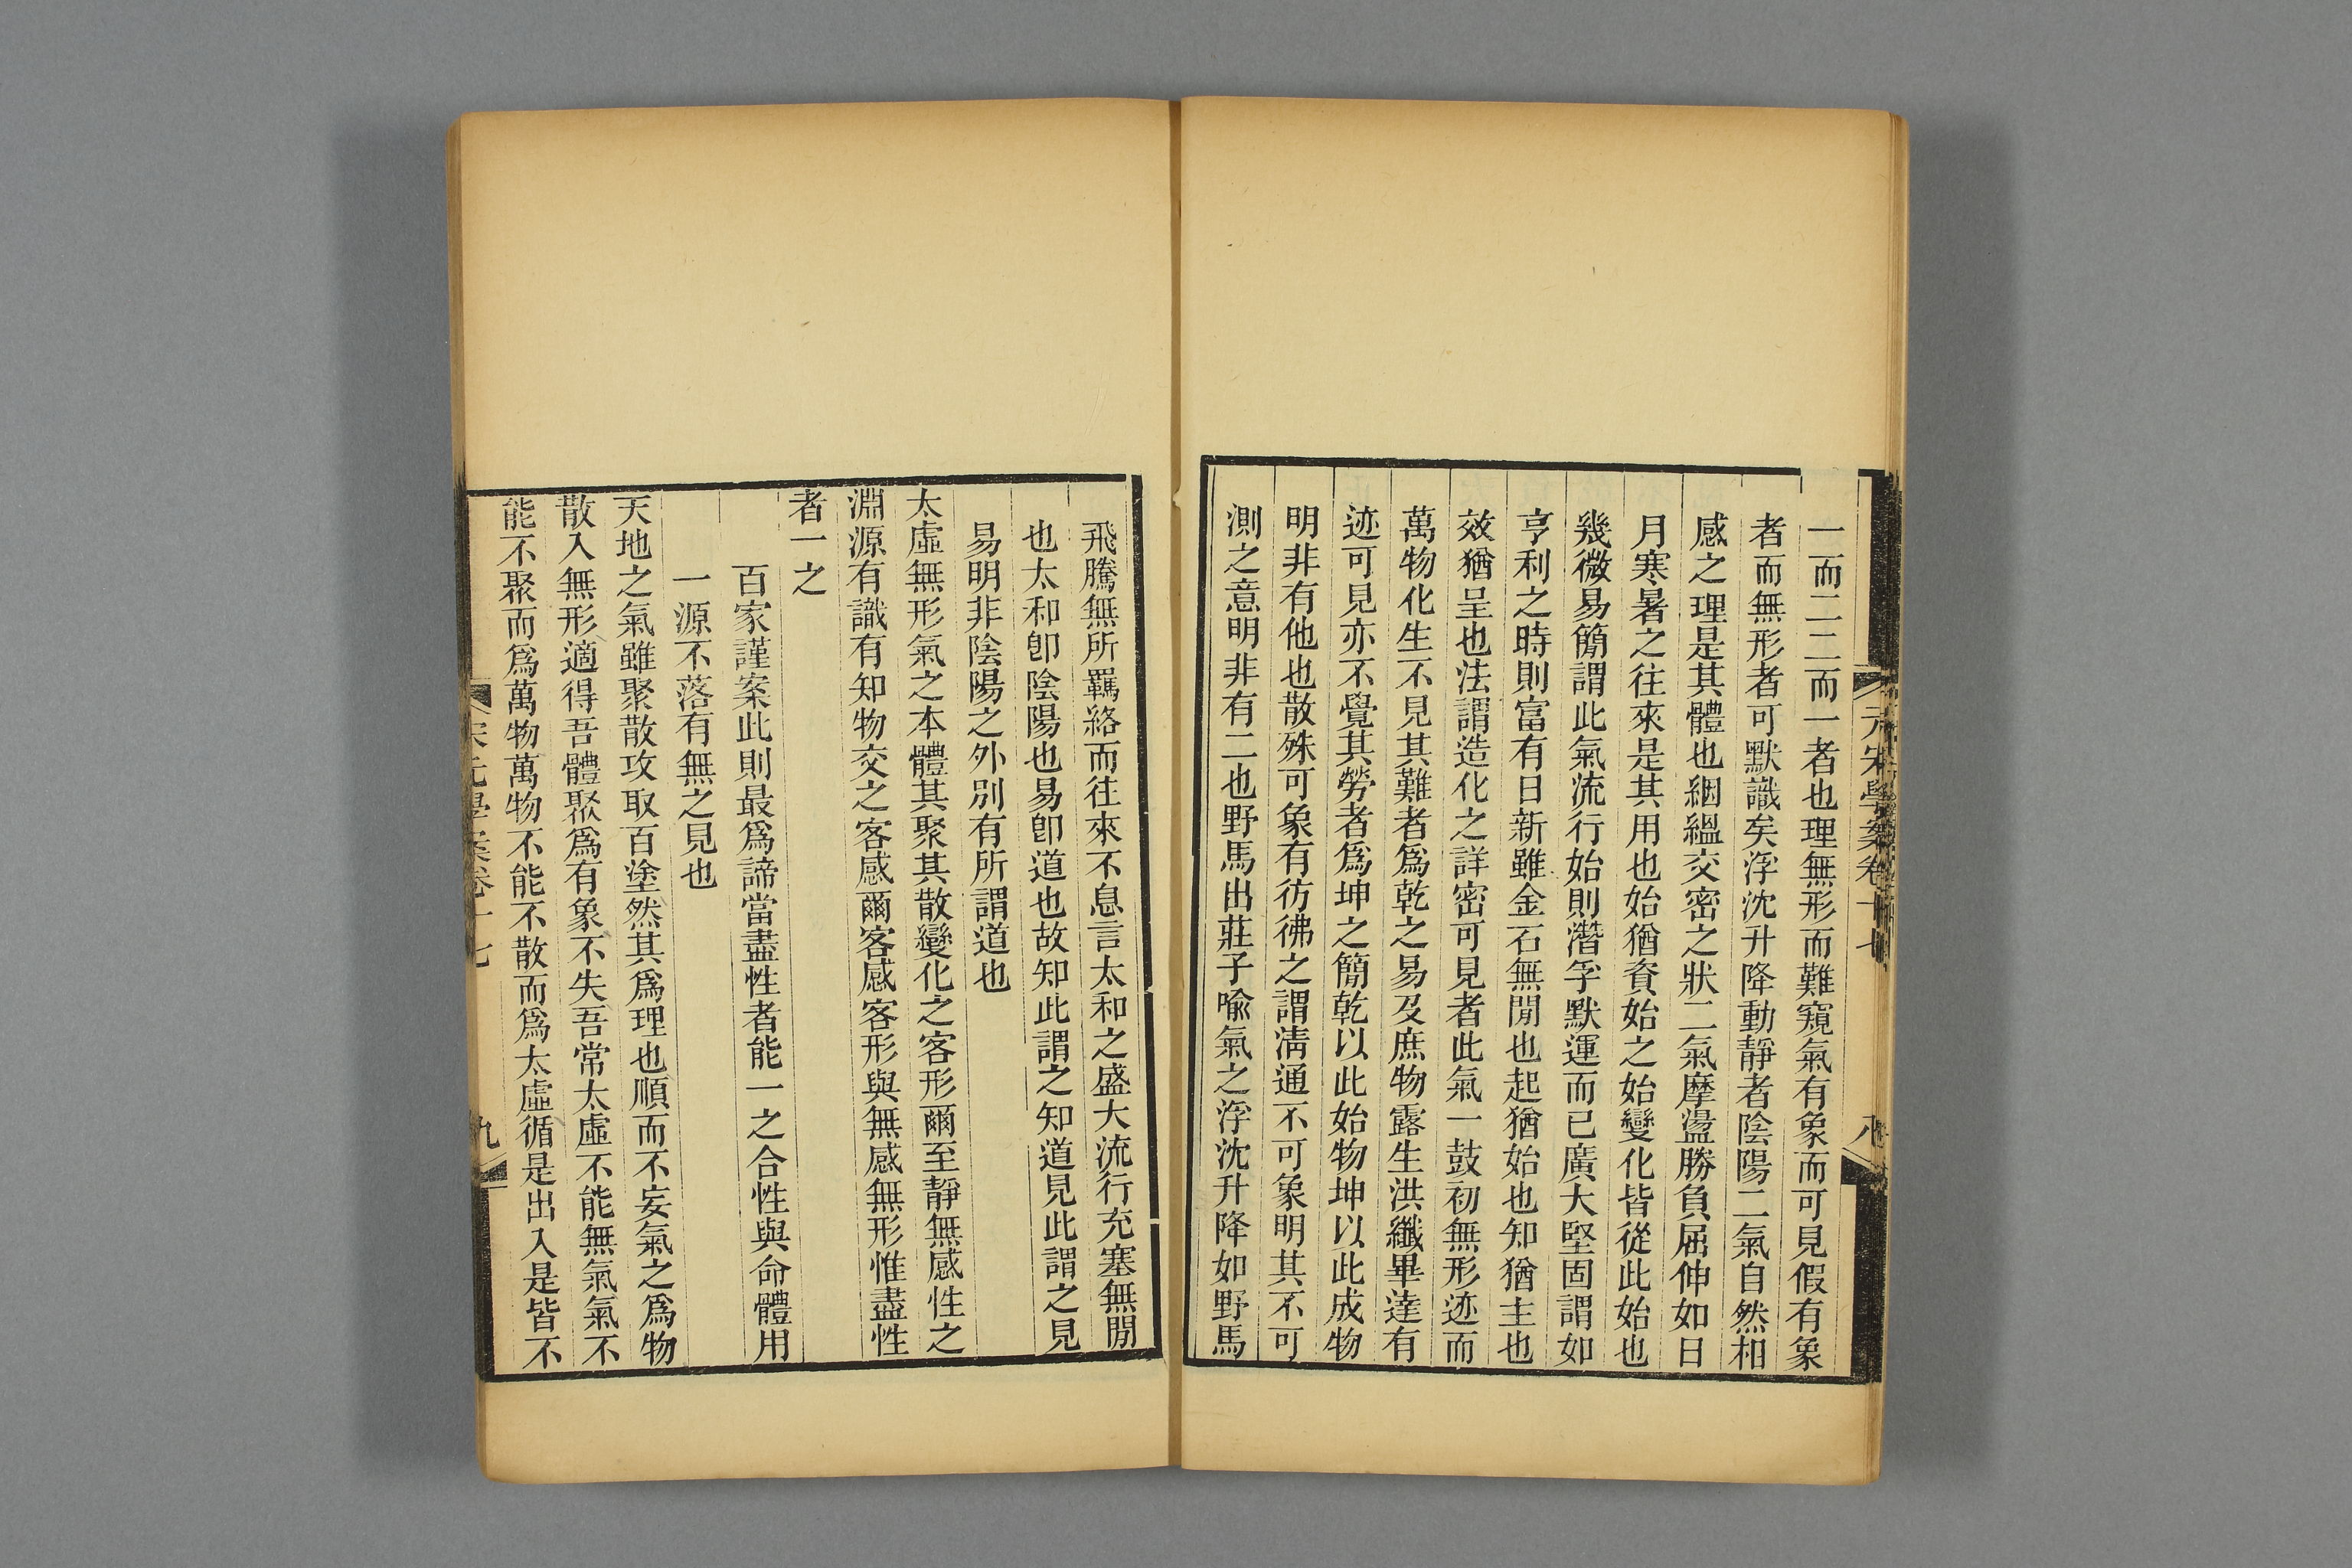 一而二二而一者也理無形而難窺氣有象而可見假有象
者而無形者可默識矣浮沈升降動靜者陰陽二氣自然相
感之理是其體也絪縕交密之狀二氣摩盪勝負屈伸如日
月寒暑之往來是其用也始猶資始之始變化皆從此始也
幾微易簡謂此氣流行始則潛孚默運而已廣大堅固謂如
亨利之時則富有日新雖金石無閒也起猶始也知猶主也
效猶呈也法謂造化之詳密可見者此氣一鼓初無形迹而
萬物化生不見其難者爲乾之易及庶物露生洪纖畢達有
迹可見亦不覺其勞者爲坤之簡乾以此始物坤以此成物
明非有他也散殊可象有彷彿之謂淸通不可象明其不可
測之意明非有二也野馬出莊子喻氣之浮沈升降如野馬
飛騰無所羈絡而往來不息言太和之盛大流行充塞無閒
也太和卽陰陽也易卽道也故知此謂之知道見此謂之見
易明非陰陽之外別有所謂道也
太虛無形氣之本體其聚其散變化之客形爾至靜無感性之
淵源有識有知物交之客感爾客感客形與無感無形惟盡性
者一之
百家謹案此則最爲諦當盡性者能一之合性與命體用
一源不落有無之見也
天地之氣雖聚散攻取百塗然其爲理也順而不妄氣之爲物
散入無形適得吾體聚爲有象不失吾常太虛不能無氣氣不
能不聚而爲萬物萬物不能不散而爲太虛循是出入是皆不
宋元學案卷十七
九